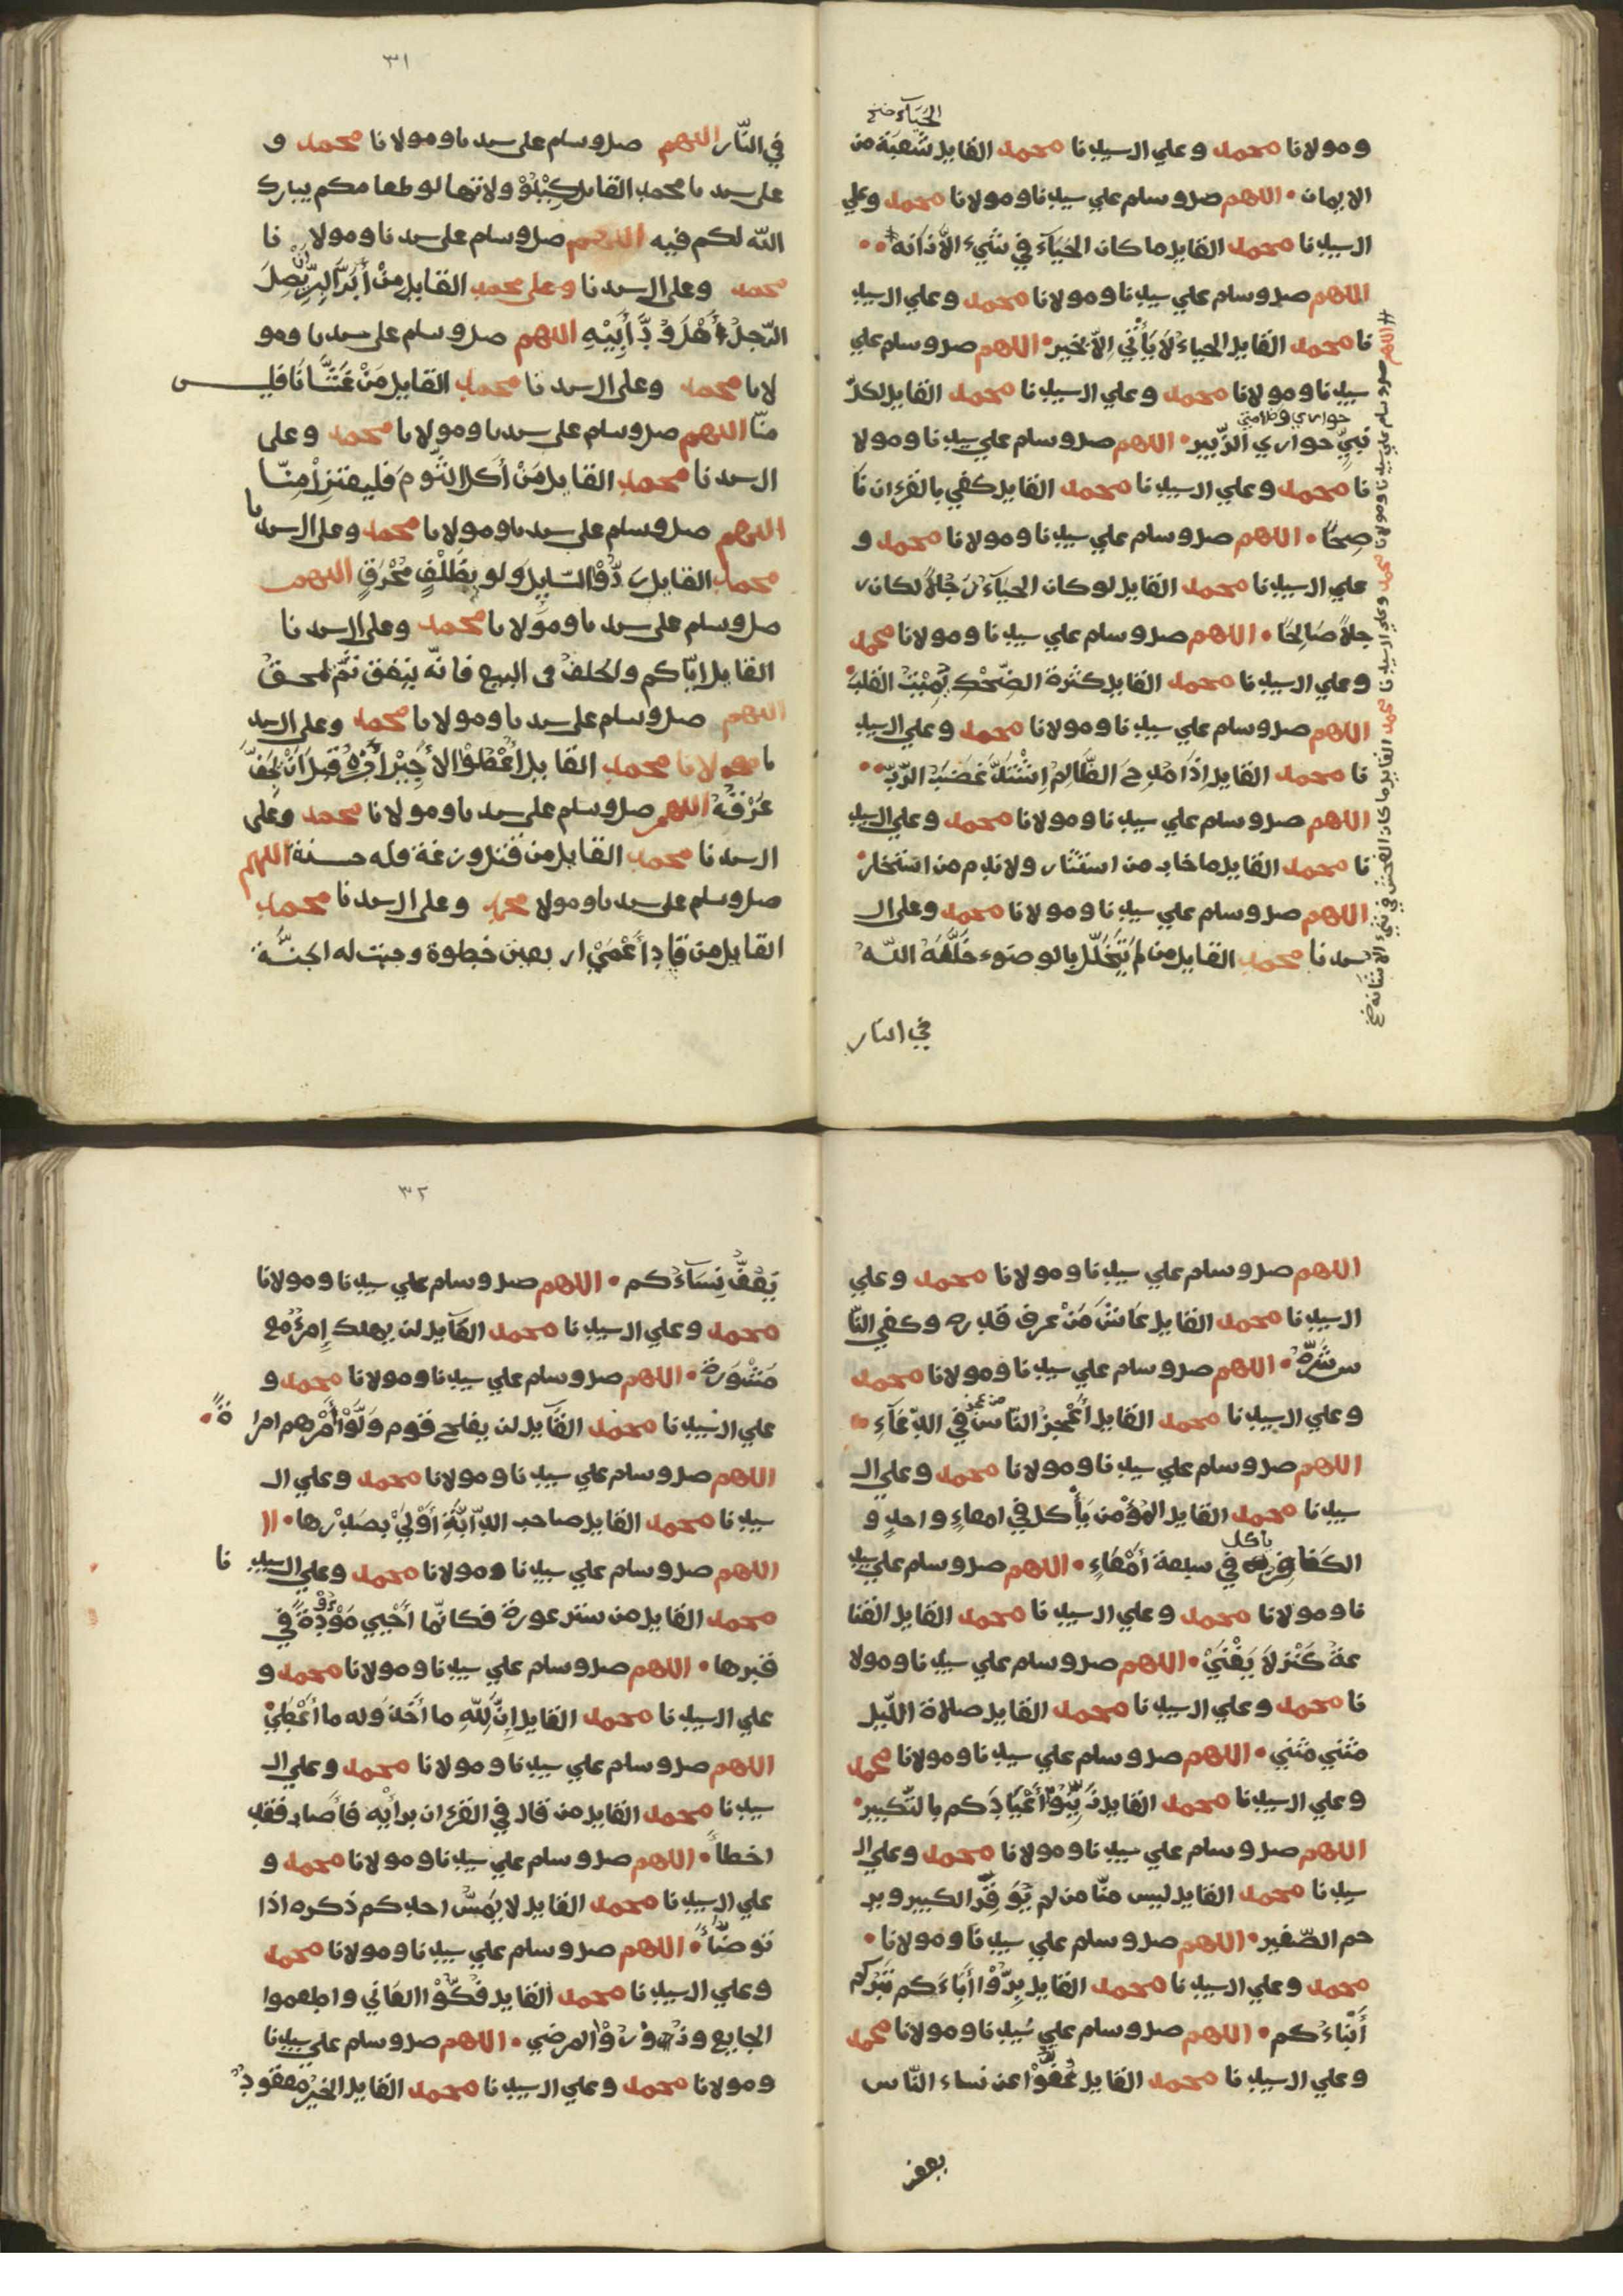 الحياء صح
ومولانا محمد وعلي ال سيدنا محمد القايل شعبة من
الايمان • اللهم صل وسلم علي سيدنا ومولانا محمد وعلي
ال سيدنا محمد القايل ما كان الحَيَآءُ في شيء الاّ زانه
اللهم صل وسلم علي سيدنا ومولانا محمد وعلي ال سيد
نا محمد القايل الحياءُ لَا يَأْتي اِلاّ بخير • اللهم صل وسلم علي
سيدنا ومولانا محمد وعلي ال سيدنا محمد القايل لكلّ
حواري وحوارييّ
نبيّ حواري الزّبير • اللهم صل وسلم علي سيدنا ومولا
نا محمد وعلي ال سيدنا محمد القايل كفي بالقرءان نا
صِحًا • اللهم صل وسلم علي سيدنا ومولانا محمد و
علي ال سيدنا محمد القايل لو كان الحياَءُ رَجُلاً لكان ر
جلاً صَالِحًا • اللهم صل وسلم علي سيدنا ومولانا محمد
وعلي ال سيدنا محمد القايل كثرة الضّحْكِ تُمِيْتُ القلبَ
اللهم صل وسلم علي سيدنا ومولانا محمد وعلي ال سيد
نا محمد القايل اِذَا مُدِحَ الظَّالِمُ اِشْتَدَّ غَضَبُ الرّبّ
اللهم صل وسلم علي سيدنا ومولانا محمد وعلي ال سيد
نا محمد القايل ما خاب من استشار ولا ندم من استخار
اللهم صل وسلم علي سيدنا ومولانا محمد وعلى ال
سيدنا محمد القايل من لم يَتَخَلّل بالوضوء خَلَّلَهُ اللّهُ
في النار
# اللهم صل وسلم علي سيدنا ومولانا محمد وعلي ال سيدنا محمد القايل ما كان الفحش في شيء الا شانه صح
٣١
في النّار اللهم صل وسلم على سيدنا ومولانا محمد و
على سيدنا محمد القايل كِيْلُوْ ولا تهالو طعامكم يبارك
اللّه لكم فيه اللهم صل وسلم على سيدنا ومولا نا
محمد وعلى ال سيدنا وعلى محمد القايل مِنْ أَبَرِّ الْبِرِّ اَنْ يَصِلَ
الرّجلُ أَهْلَ وُدِّ أَبِيْهِ اللهم صل وسلم على سيدنا ومو
لانا محمد وعلى ال سيدنا محمد القايل مَنْ غَشَّانَا فليس
منّا اللهم صل وسلم على سيدنا ومولانا محمد وعلى
ال سيدنا محمد القايل مَنْ أَكَلَ الثّومَ فليعتزلْ مِنّا
اللهم صل وسلم على سيدنا ومولانا محمد وعلى ال سيدنا
محمد القايل رَدُّوْا السّايِلَ ولو بِظَلْفٍ مُحْرَقٍ اللهم
صل وسلم على سيدنا ومولانا محمد وعلى ال سيدنا
القايل ايّاكم والحلفُ في البيع فانّه ينفق ثمّ يمحقُ
اللهم صل وسلم على سيدنا ومولانا محمد وعلى ال سيد
نا مولانا محمد القايل أُعْطُوْا الأَجِيْرَ أَجْرَهُ قبلَ اَنْ يَجِفَّ
عَرْقُهُ اللهم صل وسلم على سيدنا ومولانا محمد وعلى
ال سيدنا محمد القايل من قتل وزغة فله حسنة اللهم
صل وسلم على سيدنا ومولا محمد وعلى ال سيدنا محمد
القايل من قاد أَعْمَيْ اربعين خطوة وجبت له الجنّة
اللهم صل وسلم علي سيدنا ومولانا محمد وعلي
ال سيدنا محمد القايل عَاشَ مَنْ عرف قدره وكفي النّا
س شَرَّهُ • اللهم صل وسلم علي سيدنا ومولانا محمد
وعلي ال سيدنا محمد القايل أَعْجزُ النّاسِ من عجز في الدّعَآءِ
اللهم صل وسلم علي سيدنا ومولانا محمد وعلي ال
سيدنا محمد القايل المُؤْمن يَأْكل في امعاءٍ واحدٍ و
الكَفافِرُ يأكل في سبعة أَمْعَاءٍ • اللهم صل وسلم علي سيد
نا ومولانا محمد وعلي ال سيدنا محمد القايل القنا
عةُ كَنْز لاَ يَفْنَيْ • اللهم صل وسلم علي سيدنا ومولا
نا محمد وعلي ال سيدنا محمد القايل صلاة اللّيل
مثني مثني • اللهم صل وسلم علي سيدنا ومولانا محمد
وعلي ال سيدنا محمد القايل زَيِّنُوْا أَعْيَادَكم بالتّكبير
اللهم صل وسلم علي سيدنا ومولانا محمد وعلي ال
سيدنا محمد القايل ليس منّا من لم يُوَقِّرْ الكبير وير
حم الصّغير • اللهم صل وسلم علي سيدنا ومولانا •
محمد وعلي ال سيدنا محمد القايل بِرُّوْا أَبَاءَكم تَبَرّكم
أَبْنَاءُكم • اللهم صل وسلم علي سيدنا ومولانا محمد
وعلي ال سيدنا محمد القايل عُفُّوْا عن نساء النّاس
يعف
٣٢
يَعُفُّ نِسَآءُكم • اللهم صل وسلم علي سيدنا ومولانا
محمد وعلي ال سيدنا محمد القآيل لن يهلك اِمرُؤٌ مع
مَشْوَرةٍ • اللهم صل وسلم علي سيدنا ومولانا محمد و
علي ال سيدنا محمد القآيل لن يفلح قوم وَلَّوْا أَمْرهم امرا ةً
اللهم صل وسلم علي سيدنا ومولانا محمد وعلي ال
سيدنا محمد القايل صاحب الدّآبَّةِ أَوْليْ بصَدْرها •
اللهم صل وسلم علي سيدنا ومولانا محمد وعلي ال سيد نا
محمد القايل من ستر عورة فكانّما أَحْيي مَوْؤُدَةً في
قبرها • اللهم صل وسلم علي سيدنا ومولانا محمد و
علي ال سيدنا محمد القايل اِنَّ لِلّهِ ما أَخَذَ وَله ما أَعْطَيْ
اللهم صل وسلم علي سيدنا ومولانا محمد وعلي ال
سيدنا محمد القايل من قال في القرءان برأْيه فأَصاب فقد
اخطأَ • اللهم صل وسلم علي سيدنا ومولانا محمد و
علي ال سيدنا محمد القايل لا يَمَسّ احدكم ذكره اذا
توضّأَ • اللهم صل وسلم علي سيدنا ومولانا محمد
وعلي ال سيدنا محمد القايل فُكُّوْا العَاني واطعموا
الجايع وزُوْرُوْا المرضي • اللهم صل وسلم علي سيدنا
ومولانا محمد وعلي ال سيدنا محمد القايل الخيرُ معقودٌ